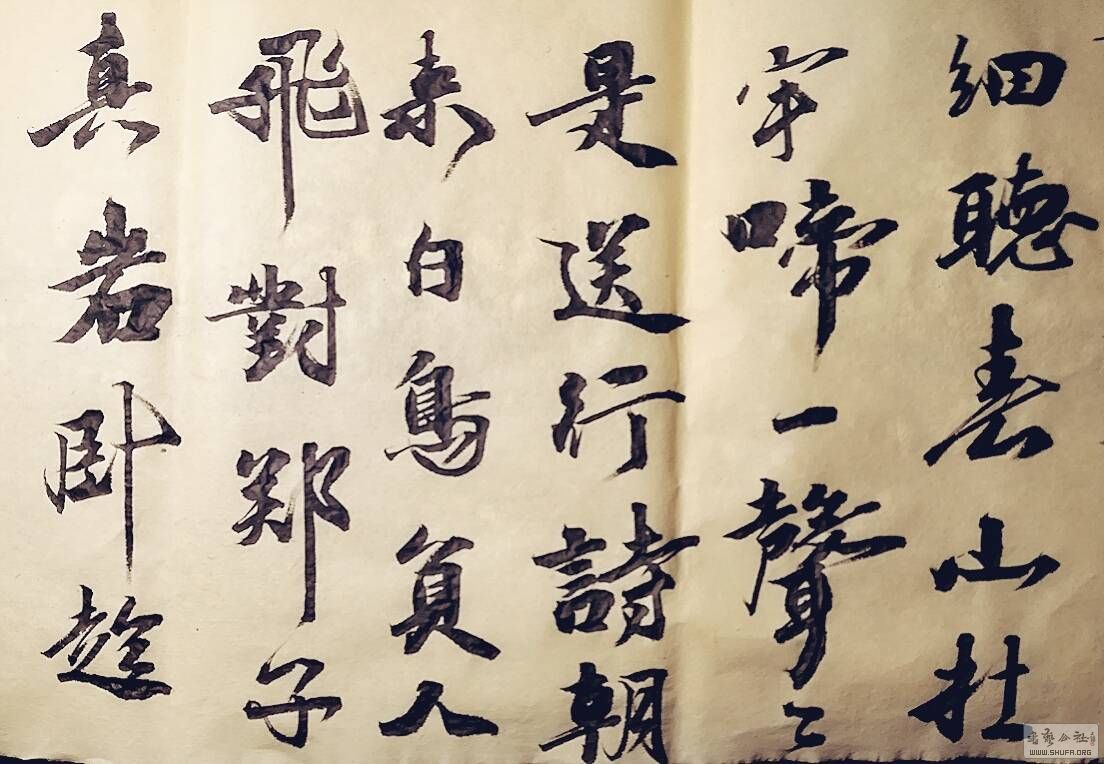 細聽春山杜
宇啼一聲〻
是送行詩朝
来白鳥負人
飛對郑子
真岩卧趁
書藝公社
WWW.SHUFA.ORG